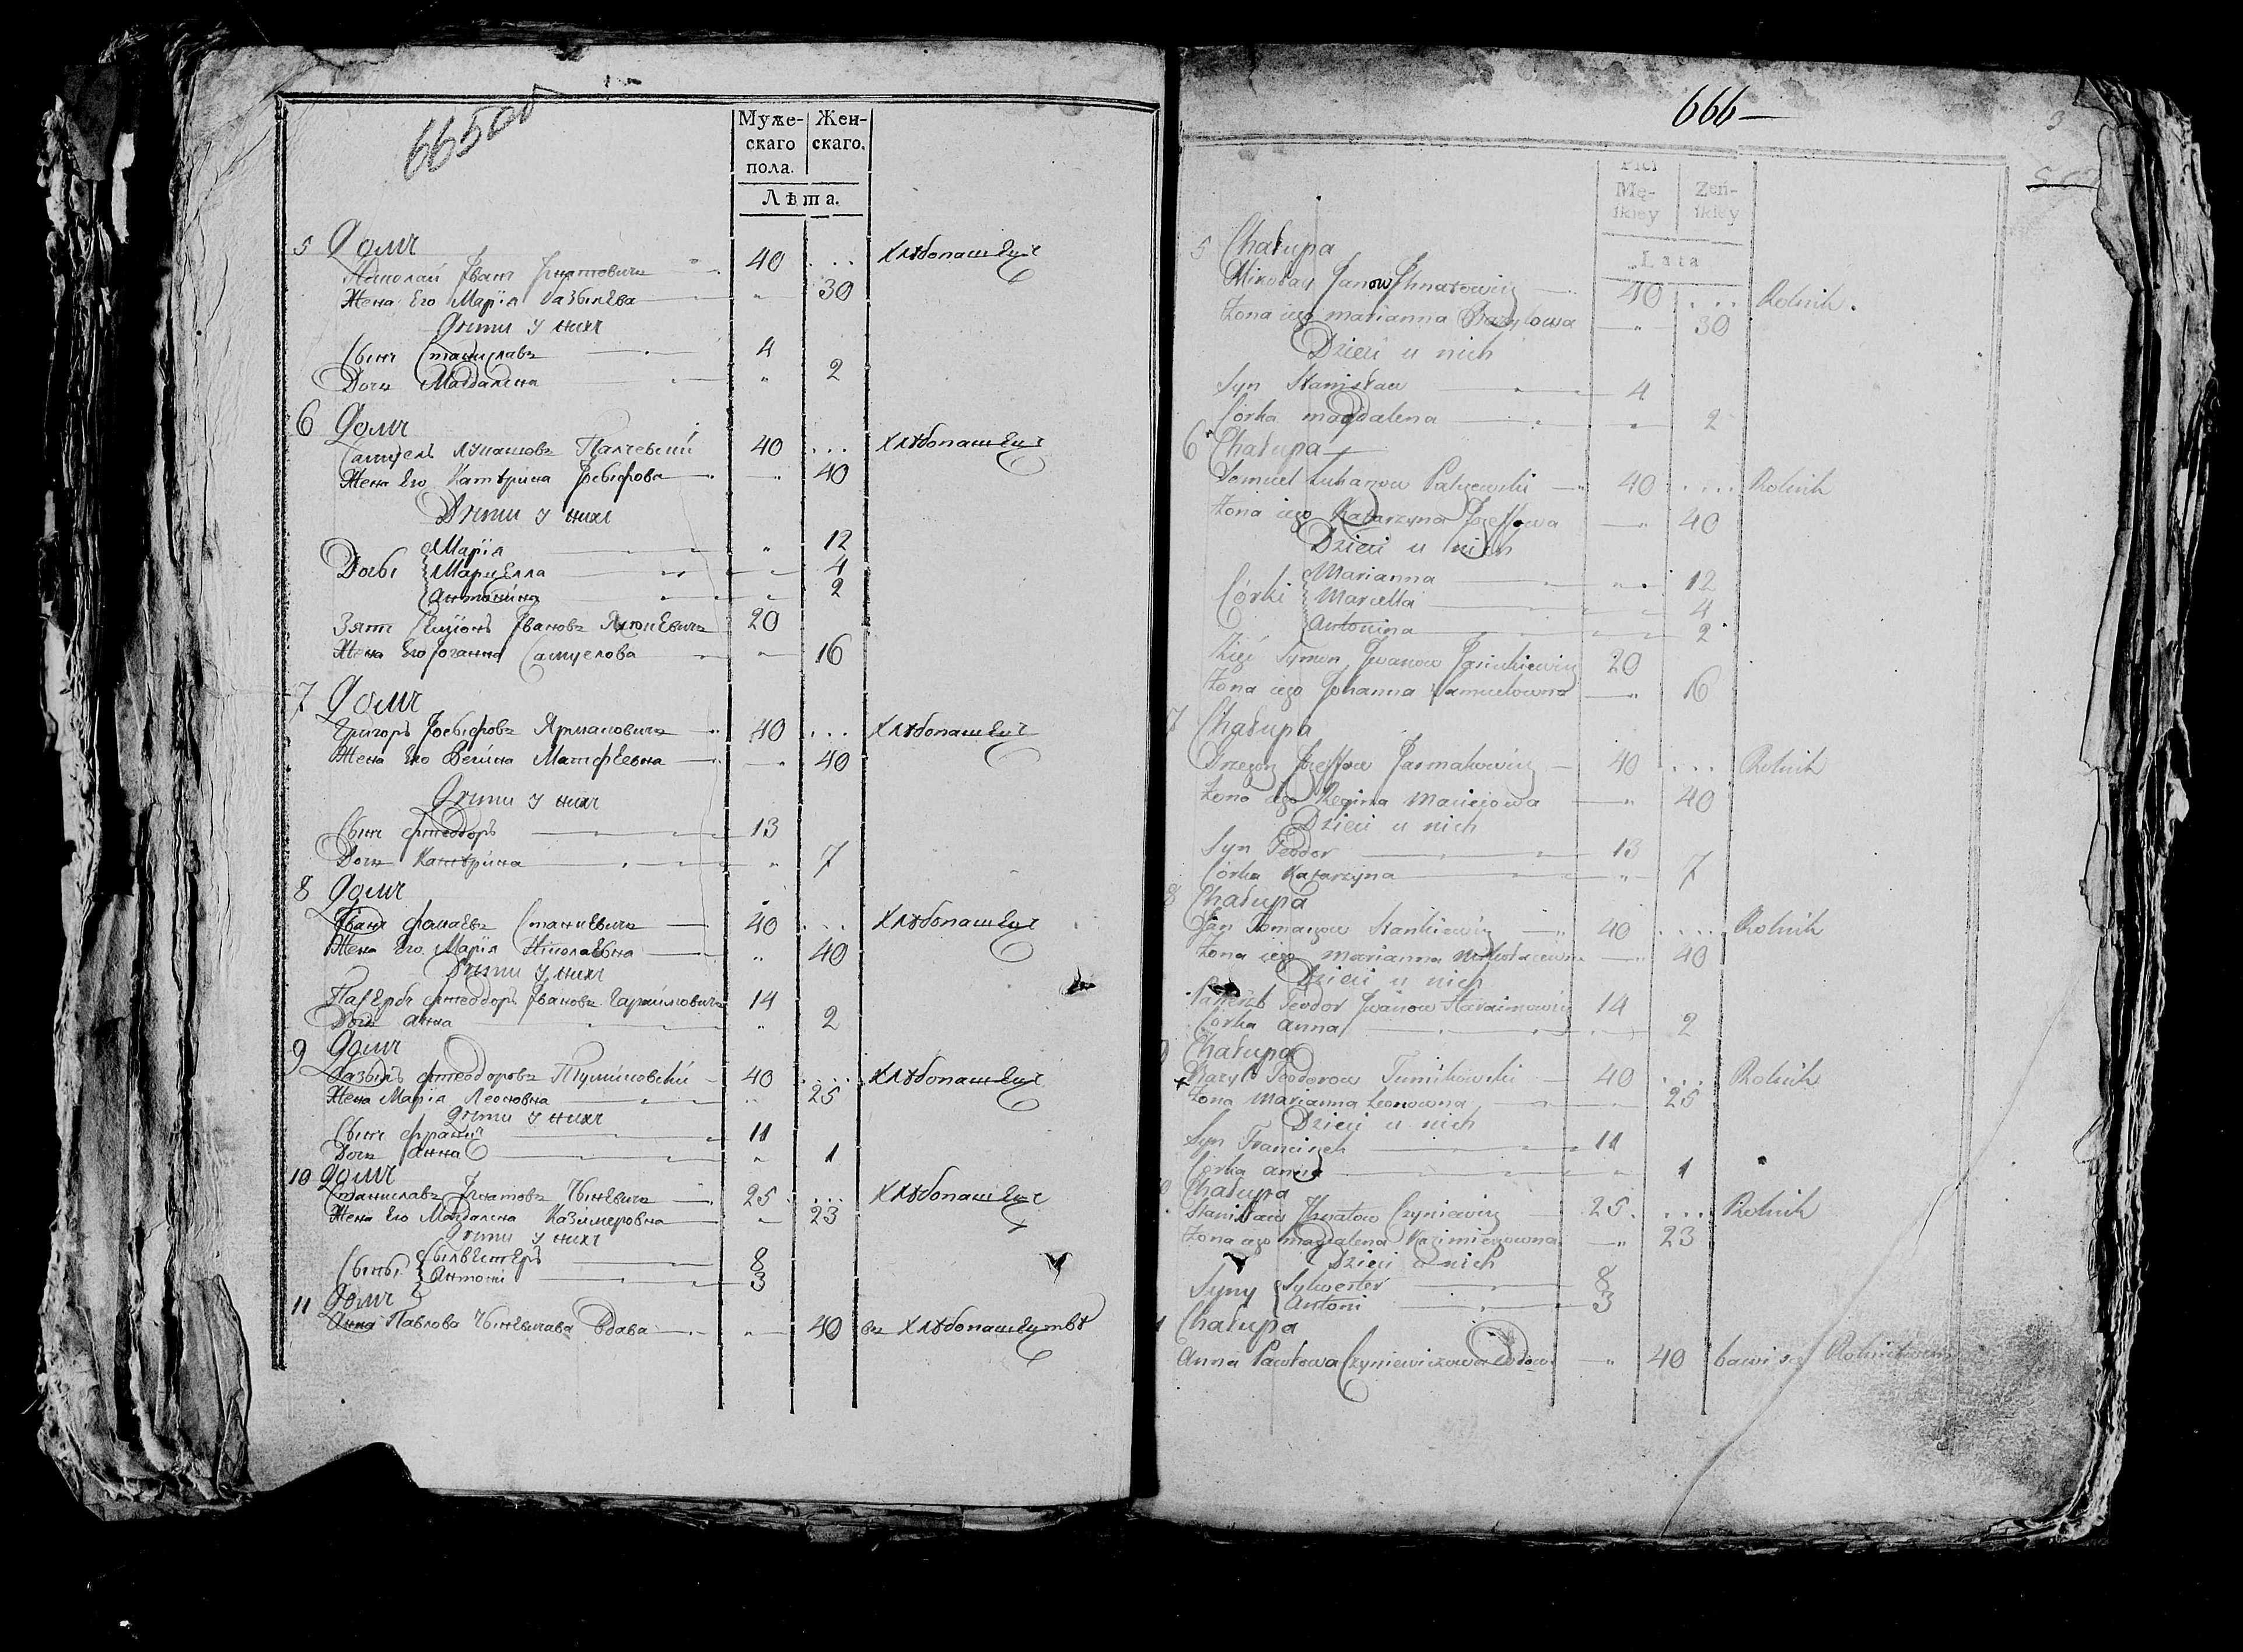 665об
Муже-
скаго
пола.
Жен-
скаго.
Лѣта.
5 Домъ
Николай Иванъ Игнатовичъ 40 ... Хлѣбопашецъ
Жена Его Марія Базылева " 30
Дѣти у нихъ
Сынъ Станиславъ 4
Дочь Магдалена " 2
6 Домъ
Самуель Лукашовъ Палчевскій 40 ... Хлѣбопашецъ
Жена Его Катѣрина Іосыфова " 40
Дѣти у нихъ
Марія " 12
Дочьі Марцелла " 4
Антонина " 2
Зять Сымонъ Ивановъ 20
Жена Его Іоганна Самуелова " 16
7 Домъ
Григоръ Іосыфовъ Ярмаковичъ 40 ... Хлѣбопашецъ
Жена Его Регина Матфеевна " 40
Дѣти у нихъ
Сынъ Фтеодоръ 13
Дочь Катѣрина " 7
8 Домъ
Иванъ Фамаевъ Станкевичъ 40 ... Хлѣбопашецъ
Жена Его Марія Николаевна " 40
Дѣти у нихъ
Пасербъ Фтеодоръ Ивановъ Гараимовичъ 14
Дочь Анна " 2
9 Домъ
Базыль Фтеодоровъ Тумиловскій 40 ... Хлѣбопашецъ
Жена Марія Леоновна " 25
Дѣти у нихъ
Сынъ Францъ 11
Дочь Анна " 1
10 Домъ
Станиславъ Игнатовъ Чыневичъ 25 ... Хлѣбопашецъ
Жена Его Магдалена Казимеровна " 23
Дѣти у нихъ
Сыны Сылвестеръ 8
Антоні 3
11 Домъ
Анна Павлова Чыневичава Вдава " 40 въ Хлѣбопашествѣ
666
3
Płci
Mę-
ſkiey
Żeń-
ſkiey
Lata
5 Chałupa
Mikołay Janow Jhnatowicz 40 ... Rolnik.
Żona iego Marianna Bazylowa " 30
Dzieci u nich
Syn Stanisław 4
Córka Magdalena " 2
6 Chałupa
Samuel Łukaszow Palczewski 40 .... Rolnik
Żona iego Katarzyna Jozeffowa " 40
Dzieci u nich
Marianna " 12
Córki Marcella " 4
Antonina " 2
Zięć Symon Jwanow Jasiukiewicz 20
Żona iego Johanna Samuelowna " 16
7 Chałupa
Grzegorz Jozeffow Jarmakowicz 40 ... Rolnik
Żona iego Regina Macieiowa " 40
Dzieci u nich
Syn Teodor 13
Córka Katarzyna " 7
8 Chałupa
Jan Tomaszow Stankiewicz 40 .... Rolnik
Żona iego Marianna Mikołaiewna " 40
Dzieci u nich
Pasierzb Teodor Jwanow Haraimowicz 14
Córka Anna " 2
Chałupa
Bazyl Teodorow Tumiłowski 40 ... Rolnik
Żona Marianna Leonowna " 25
Dzieci u nich
Syn Franciszek 11
Córka Anna " 1
Chałupa
Stanisław Jhnatow Czyniewicz 25. ... Rolnik
Żona iego Magdalena Kazimierzowna " 23
Dzieci u nich
Syny Sylwester 8
Antoni 3
Chałupa
Anna Pawłowa Czyniewiczowa Wdowa " 40 bawi się Rolnictwem